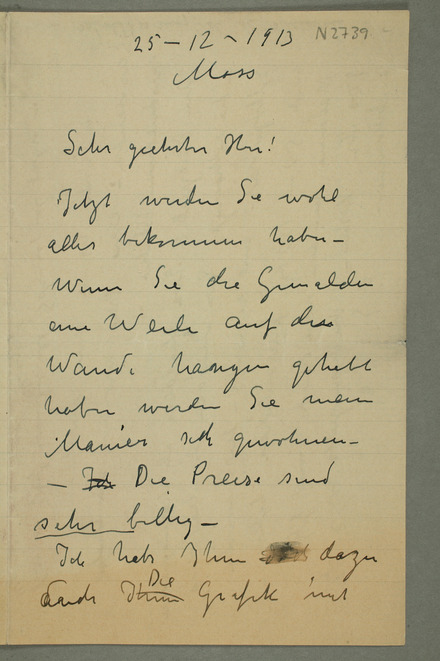 25-12-1913 N2739
Moss
Sehr geehrter Herr!
Jetzt werden Sie wohl
alles bekommen haben-
Wenn Sie die Gemälden
eine Weile auf die
Wande hangen gehabt
haben werden Sie mein
Manier sich gewohnen-
- Ich Die Preise sind
sehr billig-
Ich habe Ihnen dazu
Die
Ihnen Grafik mit